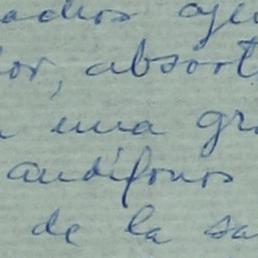 adios aje
or, absort
una gr
audífonos
de la sa